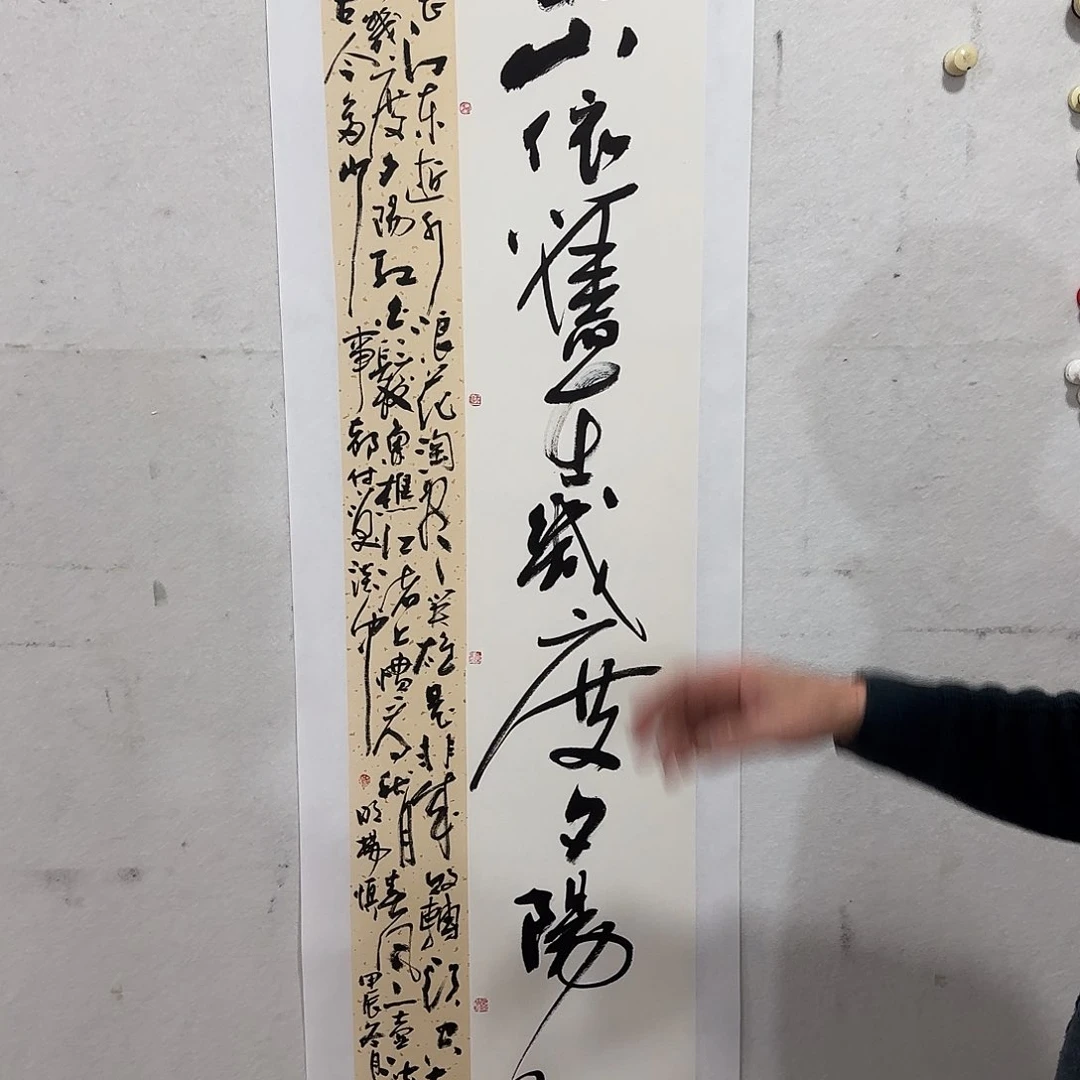 山依舊在幾度夕陽
江東逝水浪花淘盡英雄是非成敗轉頭空
幾度夕陽紅白髮漁樵江渚上慣看秋月春風一壺
古今多少事都付笑談中 明楊慎 甲辰冬月